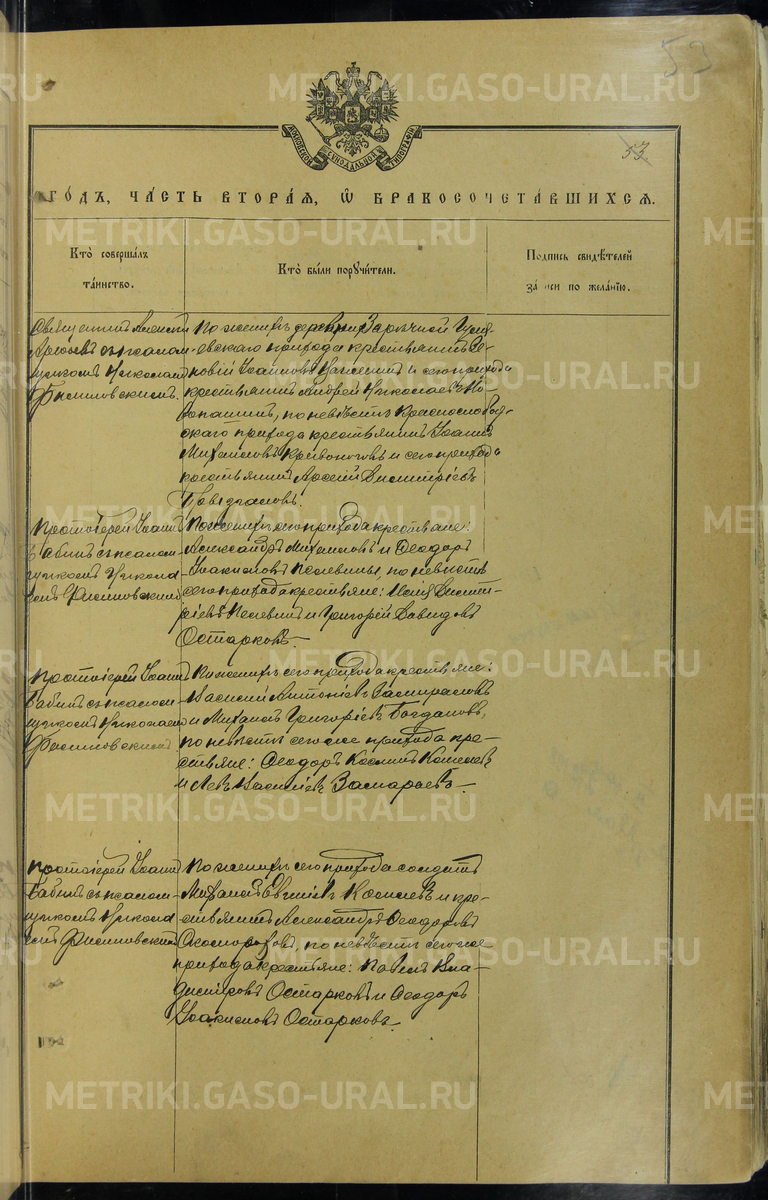 53
53.
МОСКОВСКОЙ СѴНОДАЛЬНОЙ ТИПОГРАФІИ
ГОДЪ, ЧАСТЬ ВТОРАЯ, Ѡ БРАКОСОЧЕТАВШИХСЯ.
Кто совершалъ таинство.
Кто были поручители.
Подпись свидѣтелей записи по желанію.
Священникъ Алексій
съ псалом-
щикомъ Николаемъ
Филиповскимъ.
По женихѣ деревни Зарѣчной
евскаго прихода крестьянинъ
Іоанновъ и сего прихода
крестьянинъ Андрей Николаевъ
по невѣстѣ Краснослобод-
скаго прихода крестьянинъ Іоаннъ
Михаиловъ Кривоноговъ и сего прихода
крестьянинъ Арсеній Димитріевъ
Протоіерей Іоаннъ
Бабинъ съ псалом-
щикомъ Никола-
емъ Филиповскимъ
По женихѣ сего прихода крестьяне:
Александръ Михаиловъ и Ѳеодоръ
Іоакимовъ по невѣстѣ
сего прихода крестьяне: Димит-
ріевъ и Григорій Давидовъ
Остарковъ.
Протоіерей Іоаннъ
Бабинъ съ псалом-
щикомъ Николаемъ
Филиповскимъ
По женихѣ сего прихода крестьяне:
Василій Антоніевъ
и Михаилъ Григоріевъ Богдановъ,
по невѣстѣ сего же прихода кре-
стьяне: Ѳеодоръ Косминъ
и Левъ Василіевъ Замараевъ.
Протоіерей Іоаннъ
Бабинъ съ псалом-
щикомъ Никола-
емъ Филиповскимъ
По женихѣ сего прихода солдатъ
Михаилъ и кре-
стьянинъ Александръ Ѳеодоровъ
по невѣстѣ сего же
прихода крестьяне: Павелъ Вла-
диміровъ Остарковъ и Ѳеодоръ
Іоакимовъ Остарковъ.
METRIKI.GASO-URAL.RU